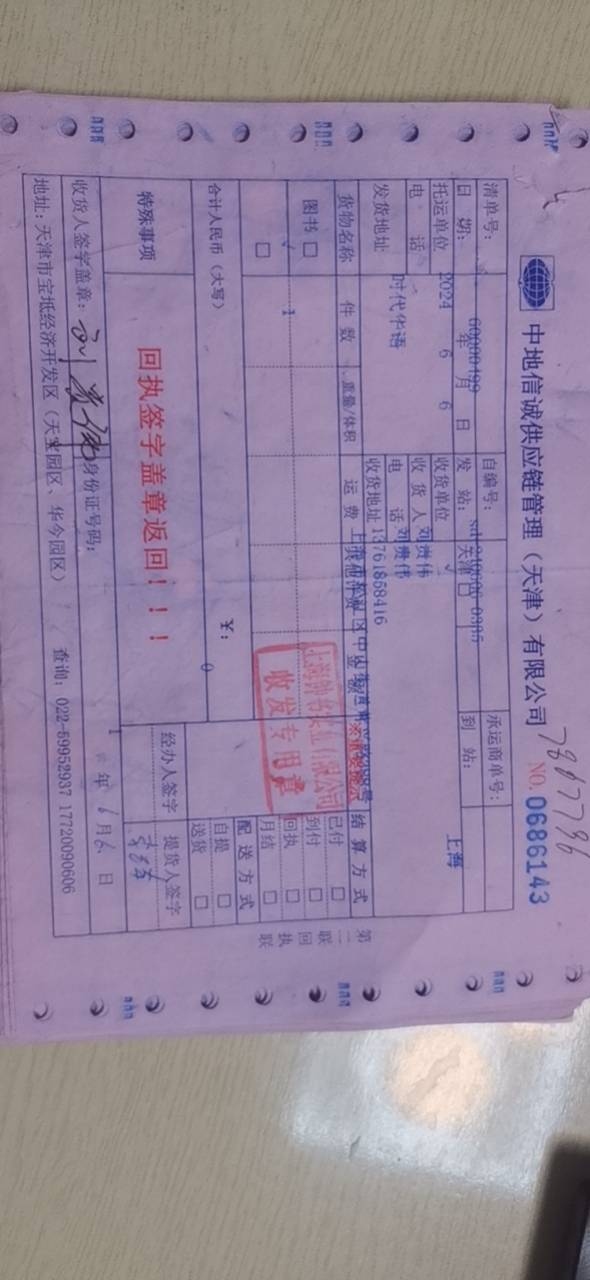 中地信诚供应链管理（天津）有限公司
7867796
NO. 0686143
清单号: 60000499
自编号:
承运商单号:
日 期: 2024 年 6 月 6 日
发 站: 天津
到 站: 上海
托运单位
收货单位
电 话
收 货 人 刘贵伟
发货地址
时代华语
电 话
收货地址 13761868416
货物名称
件 数
重量/体积
运 费
金 额
结 算 方 式
图书 □
1
已付 □
到付 □
回执 □
月结 □
上海钟书实业有限公司
收发专用章
合计人民币（大写）
¥: 0
配 送 方 式
自提 □
送货 □
特殊事项
回执签字盖章返回！！！
经办人签字
提货人签字
收货人签字盖章:
身份证号码:
年 6 月 6 日
地址: 天津市宝坻经济开发区（天宝园区、华今园区）
查询: 022-59953937 17720090606
第二联 回执联